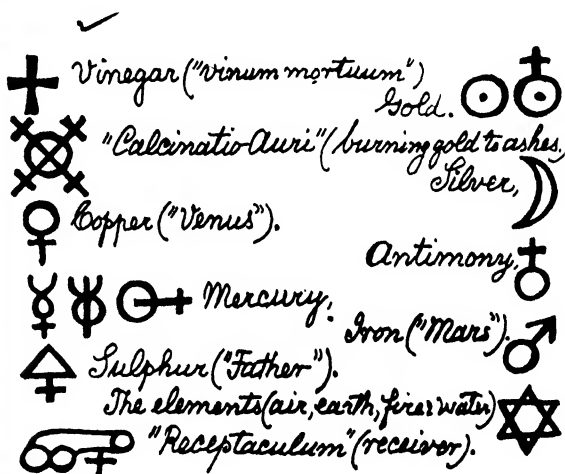 Vinegar ("vinum mortuum")
Gold.
"Calcinatio Auri" (burning gold to ashes,)
Silver,
Copper ("Venus").
Antimony,
Mercury,
Iron ("Mars").
Sulphur ("Father").
The elements (air, earth, fire & water)
"Receptaculum" (receiver).